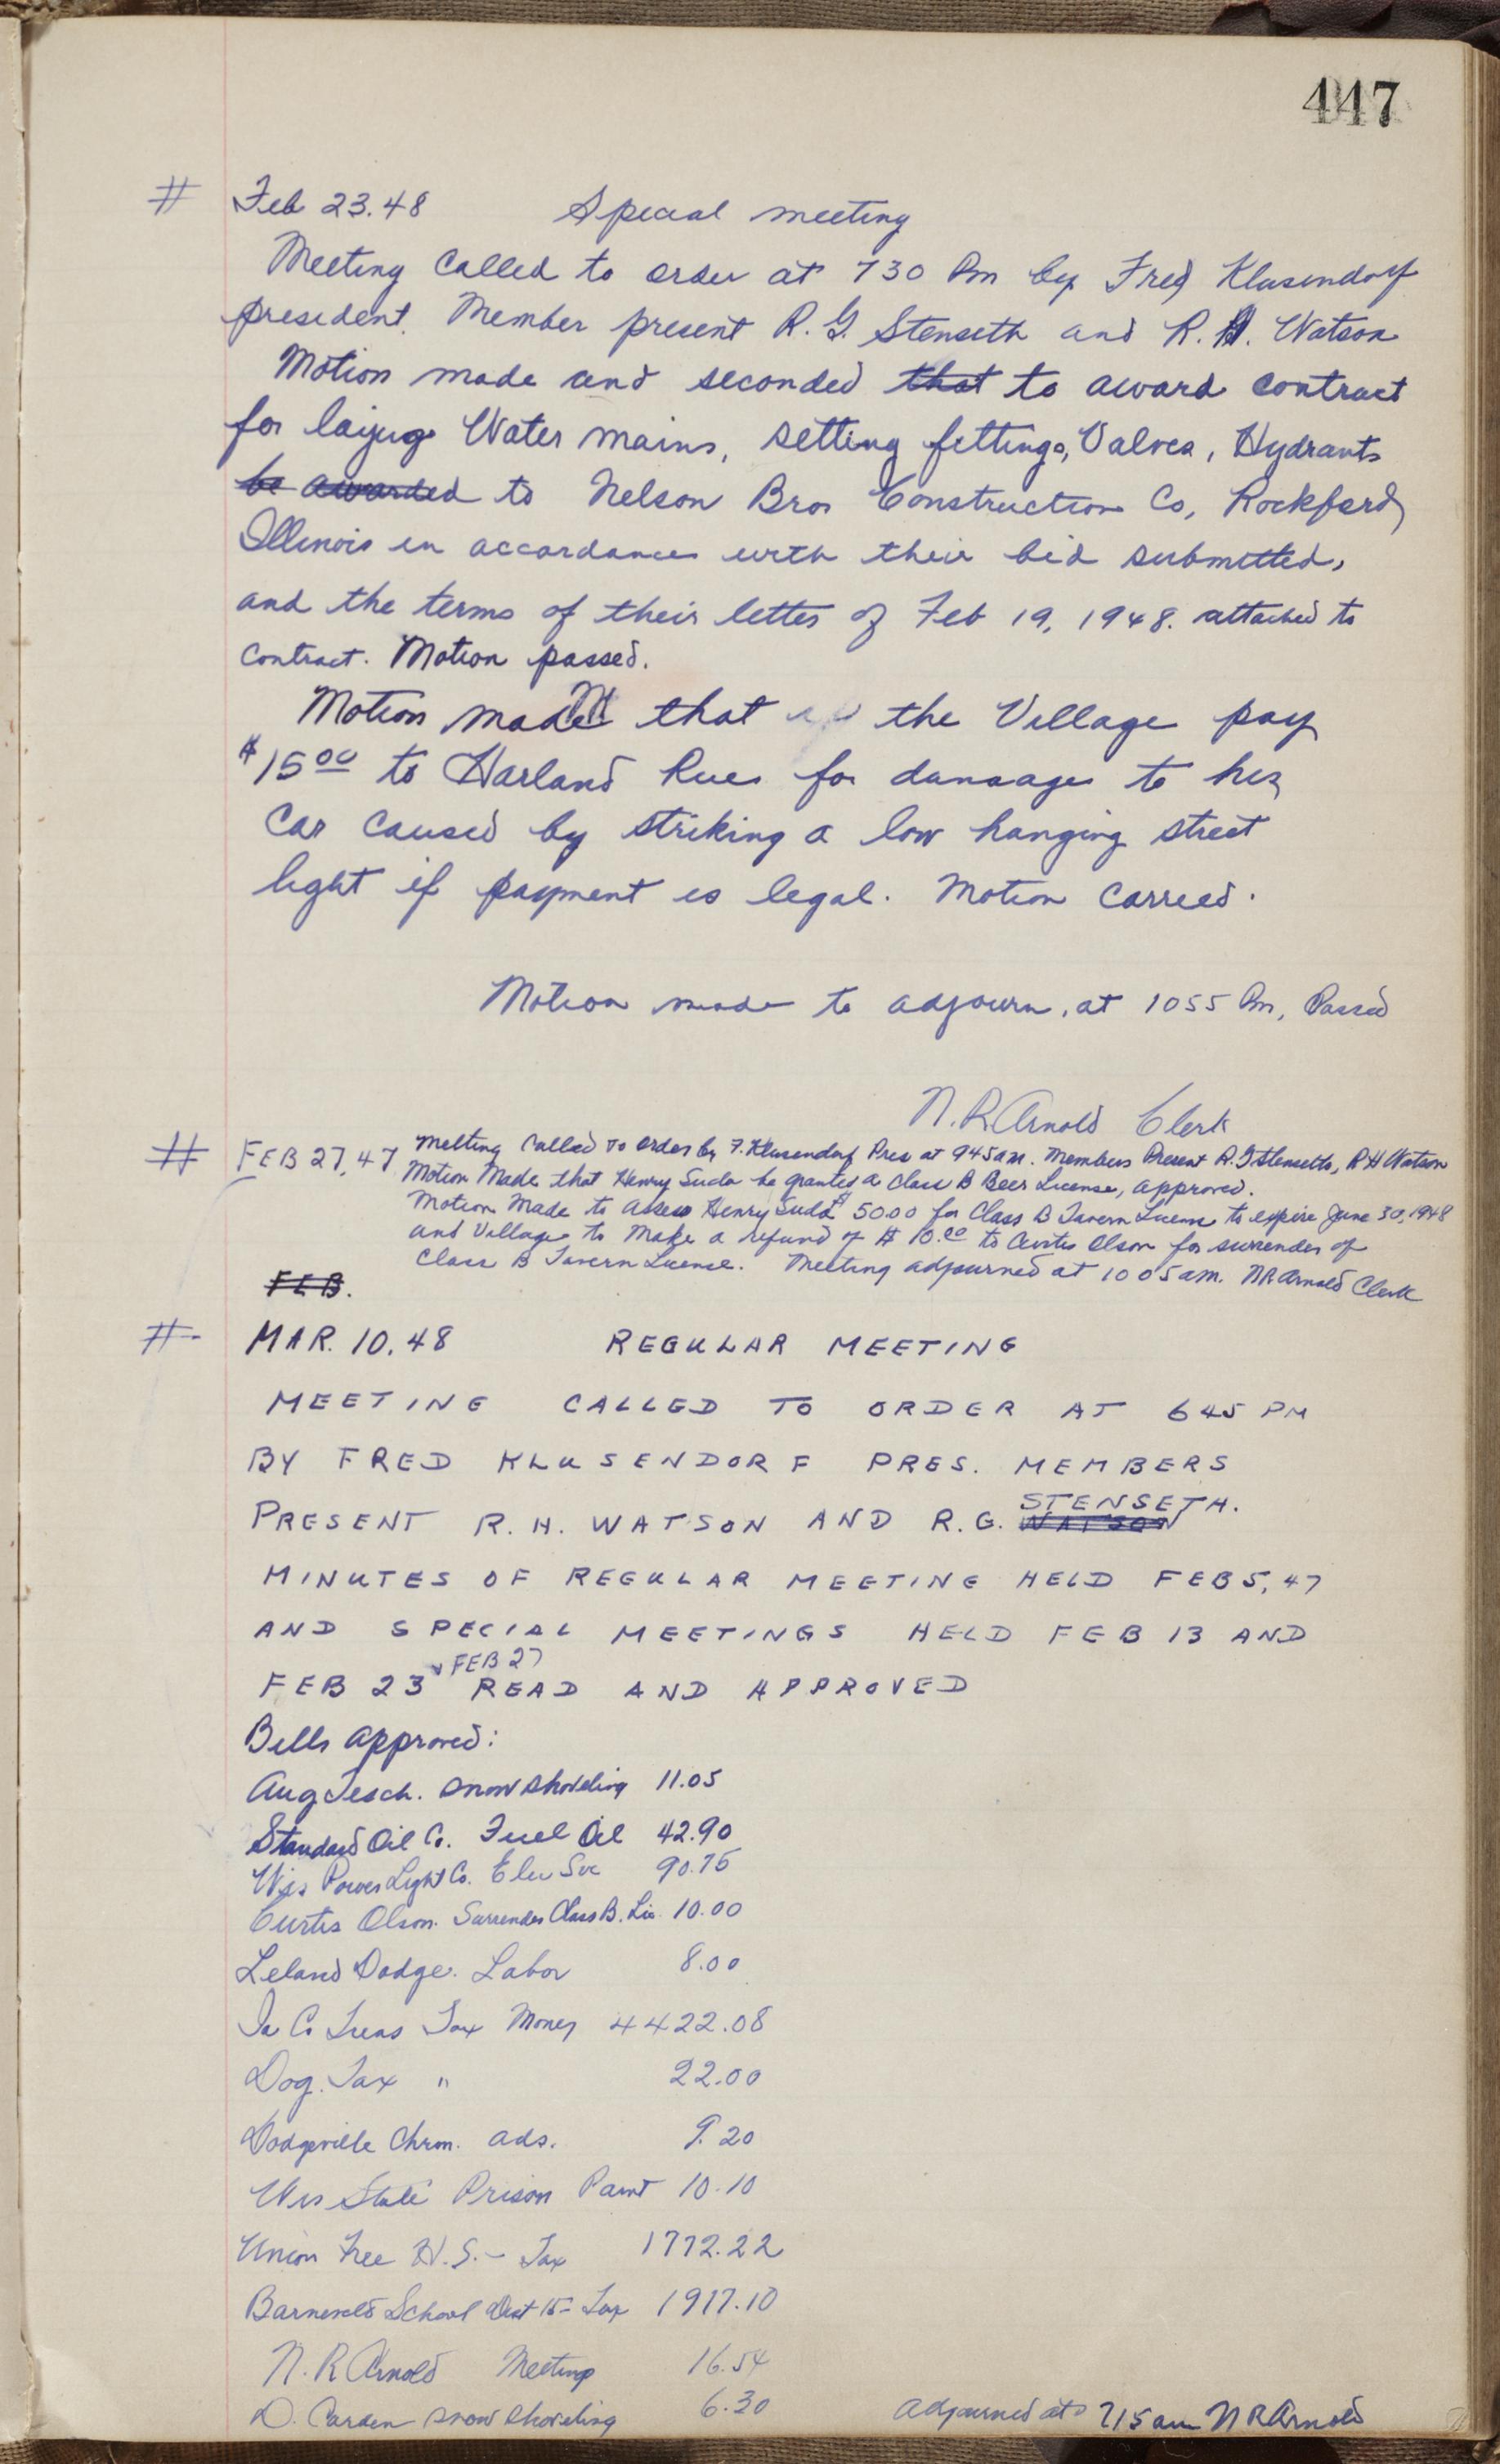 447
# Feb 23.48 Special meeting
Meeting called to order at 730 Pm by Fred Klusendorf
president. Member present R. G. Stenseth and R. H. Watson
Motion made and seconded that to award contract
for laying Water mains, setting fittings, Valves, Hydrants
be awarded to Nelson Bros Construction Co, Rockford
Illinois in accordance with their bid submitted,
and the terms of their letter of Feb 19, 1948. attached to
contract. Motion passed.
Motion made that the Village pay
$15.00 to Harland Rue for damage to his
Car caused by striking a low hanging street
light if payment is legal. Motion carried.
Motion made to adjourn, at 1055 Pm, Passed
N. R. Arnold Clerk
# FEB 27, 47 Meeting called to order by F. Klusendorf Pres at 945 am. Members Present R. G. Stenseth, R H Watson
Motion Made that Henry Suda be granted a Class B Beer License, approved.
Motion Made to assess Henry Suda $50.00 for Class B Tavern License to expire June 30, 1948
and Village to Make a refund of $10.00 to Curtis Olson for surrender of
Class B Tavern License. Meeting adjourned at 1005 am. N R Arnold Clerk
FEB.
# MAR. 10. 48 REGULAR MEETING
MEETING CALLED TO ORDER AT 645 PM
BY FRED KLUSENDORF PRES. MEMBERS
PRESENT R. H. WATSON AND R. G. WATSON STENSETH.
MINUTES OF REGULAR MEETING HELD FEB 5, 47
AND SPECIAL MEETINGS HELD FEB 13 AND
FEB 23 FEB 27 READ AND APPROVED
Bills approved:
Aug Tesch. snow shoveling 11.05
Standard Oil Co. Fuel Oil 42.90
Wis Power Light Co. Elec Svc 90.75
Curtis Olson. Surrender Class B. Lic. 10.00
Leland Dodge. Labor 8.00
Ia Co Treas Tax Money 4422.08
Dog. Tax " 22.00
Dodgeville Chron. ads. 9.20
Wis State Prison Paint 10.10
Union Free H. S. - Tax 1772.22
Barneveld School Dist 15 - Tax 1917.10
N. R Arnold Meeting 16.54
D. Carden snow shoveling 6.30
Adjourned at 715 am N R Arnold